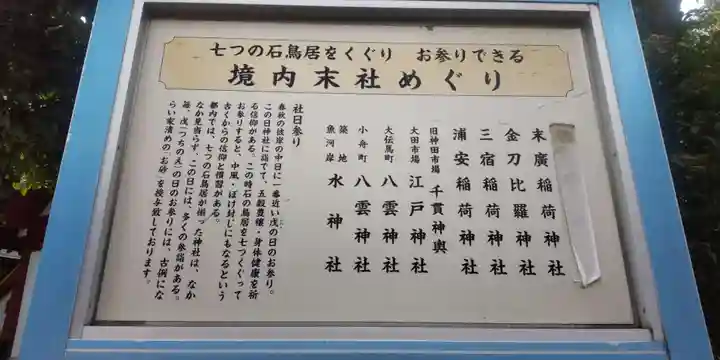 七つの石鳥居をくぐり お参りできる
境内末社めぐり
末廣稲荷神社
金刀比羅神社
三宿稲荷神社
浦安稲荷神社
旧神田市場 千貫神輿
大田市場 江戸神社
大伝馬町 八雲神社
小舟町 八雲神社
築地魚河岸 水神社
社日参り
春秋の彼岸の中日に一番近い戊の日のお参り。
この日神社に詣で、五穀豊穣・身体健康を祈
る信仰がある。この時石の鳥居を七つくぐって
お参りすると、中風・ぼけ封じにもなるという
古くからの信仰と慣習がある。
都内では、七つの石鳥居が揃った神社は、なか
なか見当らず、この日には、多くの参詣がある。
毎、戊(つちのえ)の日のお参りには、古例にな
らい家清めの「お砂」を授与致しております。